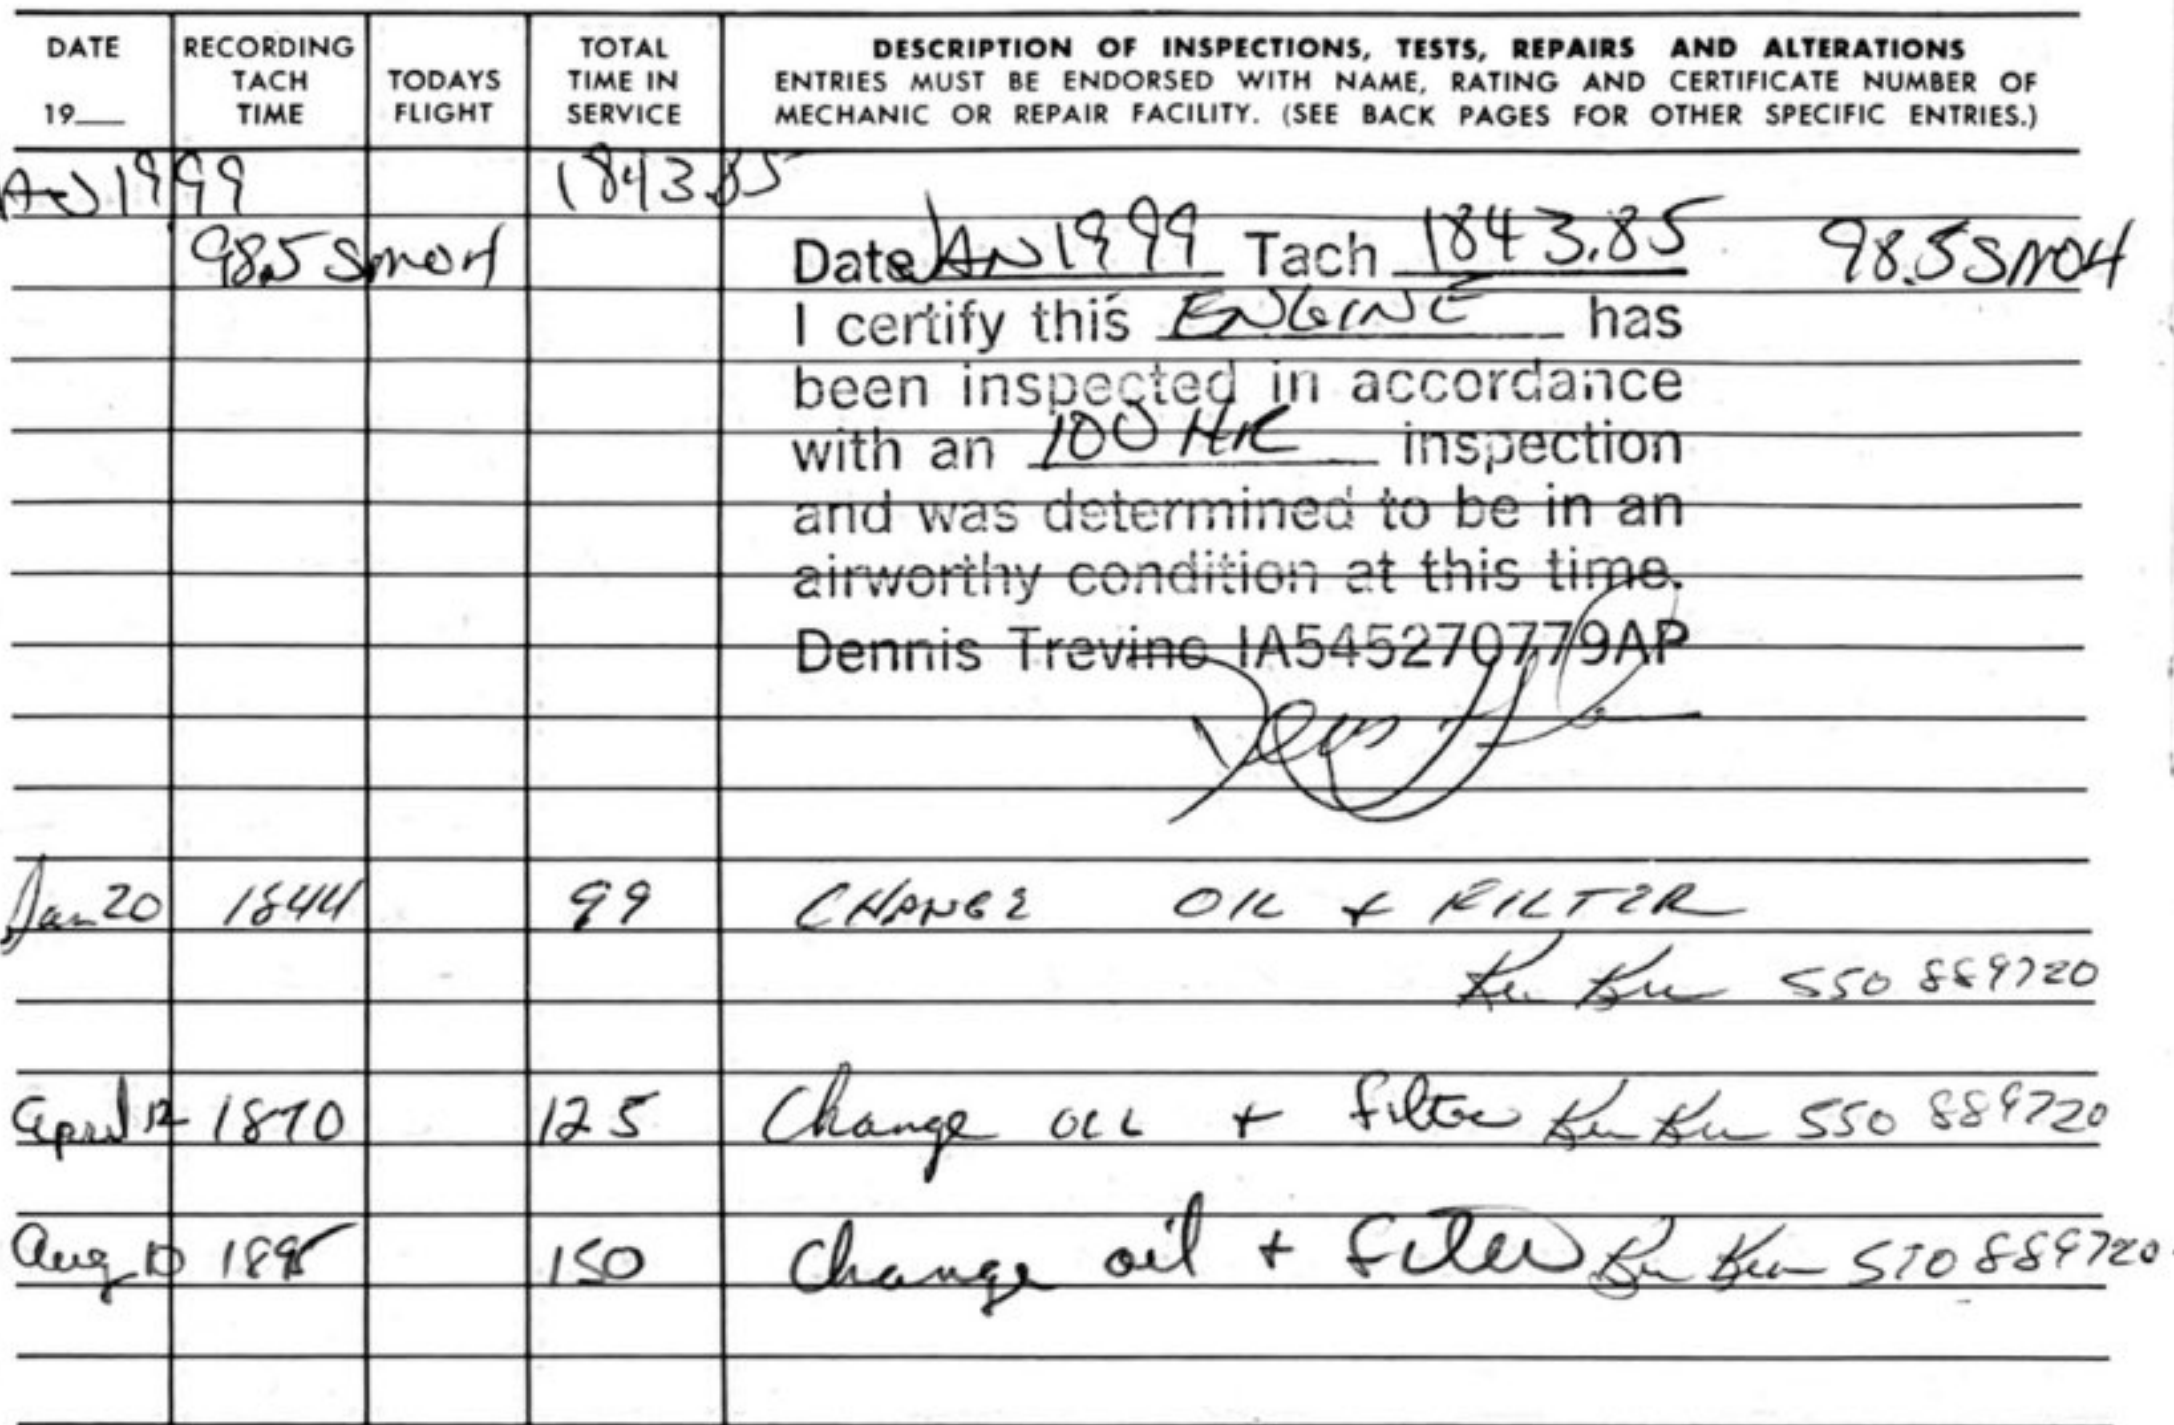 DATE RECORDING TACH TIME TODAYS FLIGHT TOTAL TIME IN SERVICE DESCRIPTION OF INSPECTIONS, TESTS, REPAIRS AND ALTERATIONS
19__ ENTRIES MUST BE ENDORSED WITH NAME, RATING AND CERTIFICATE NUMBER OF
MECHANIC OR REPAIR FACILITY. (SEE BACK PAGES FOR OTHER SPECIFIC ENTRIES.)
AN 1999 1843.85
98.5 SMOH Date JAN 1999 Tach 1843.85 98.5 SMOH
I certify this ENGINE has
been inspected in accordance
with an 100 HR inspection
and was determined to be in an
airworthy condition at this time.
Dennis Trevino IA545270779AP
Jan 20 1844 99 CHANGE OIL + FILTER
550 889720
April 12 1870 125 Change OIL + filter 550 889720
Aug 10 1895 150 Change oil + filter 570 889720